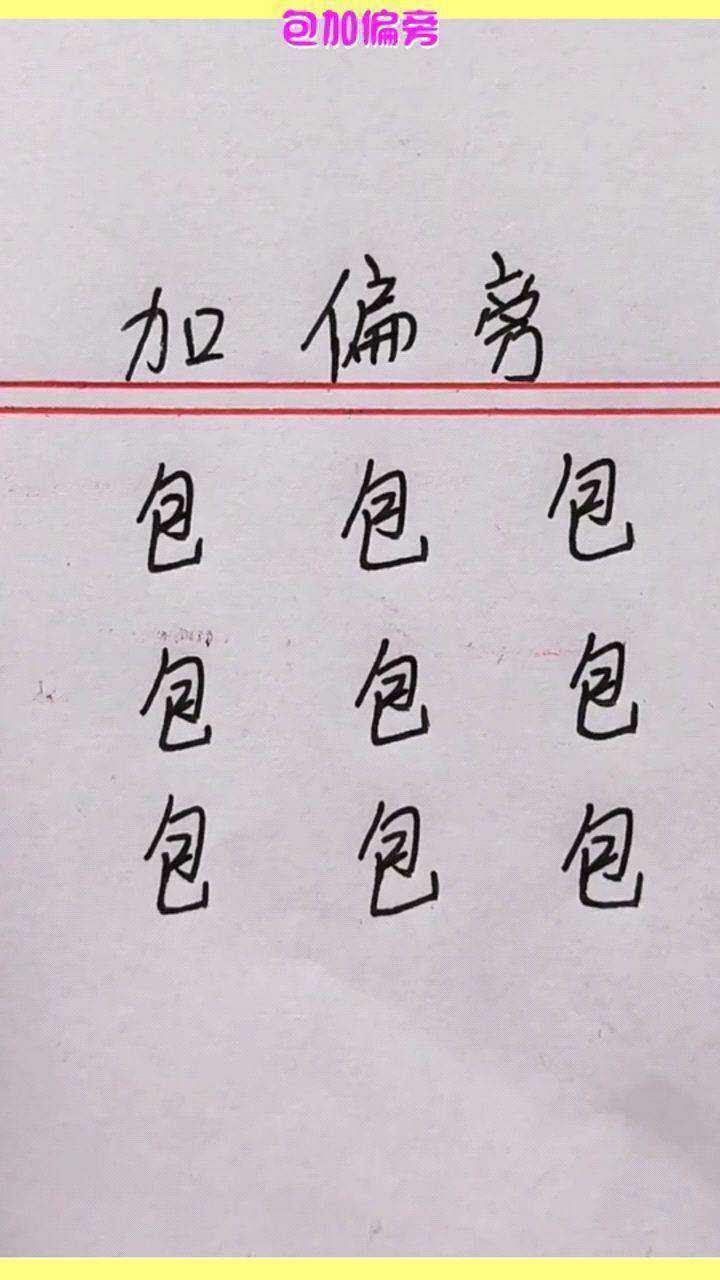 包加偏旁
加 偏 旁
包 包 包
包 包 包
包 包 包